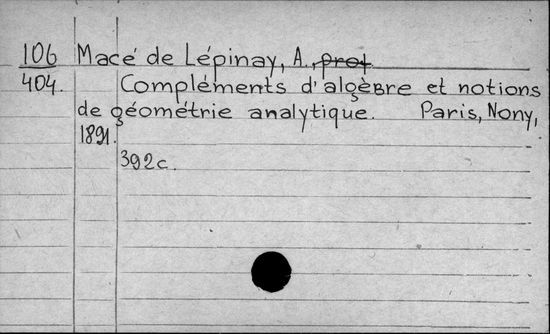 106 Macé de Lépinay, A., prof
404. Compléments d'algèbre et notions
de géométrie analytique. Paris, Nony,
1891.
392 c.